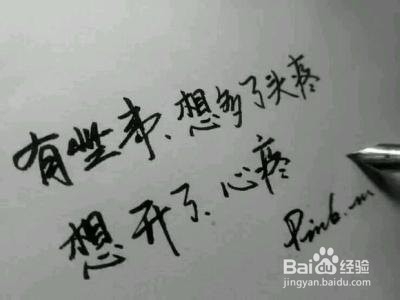 有些事、想多了头疼
想开了、心疼
Bai度经验
jingyan.baidu.com